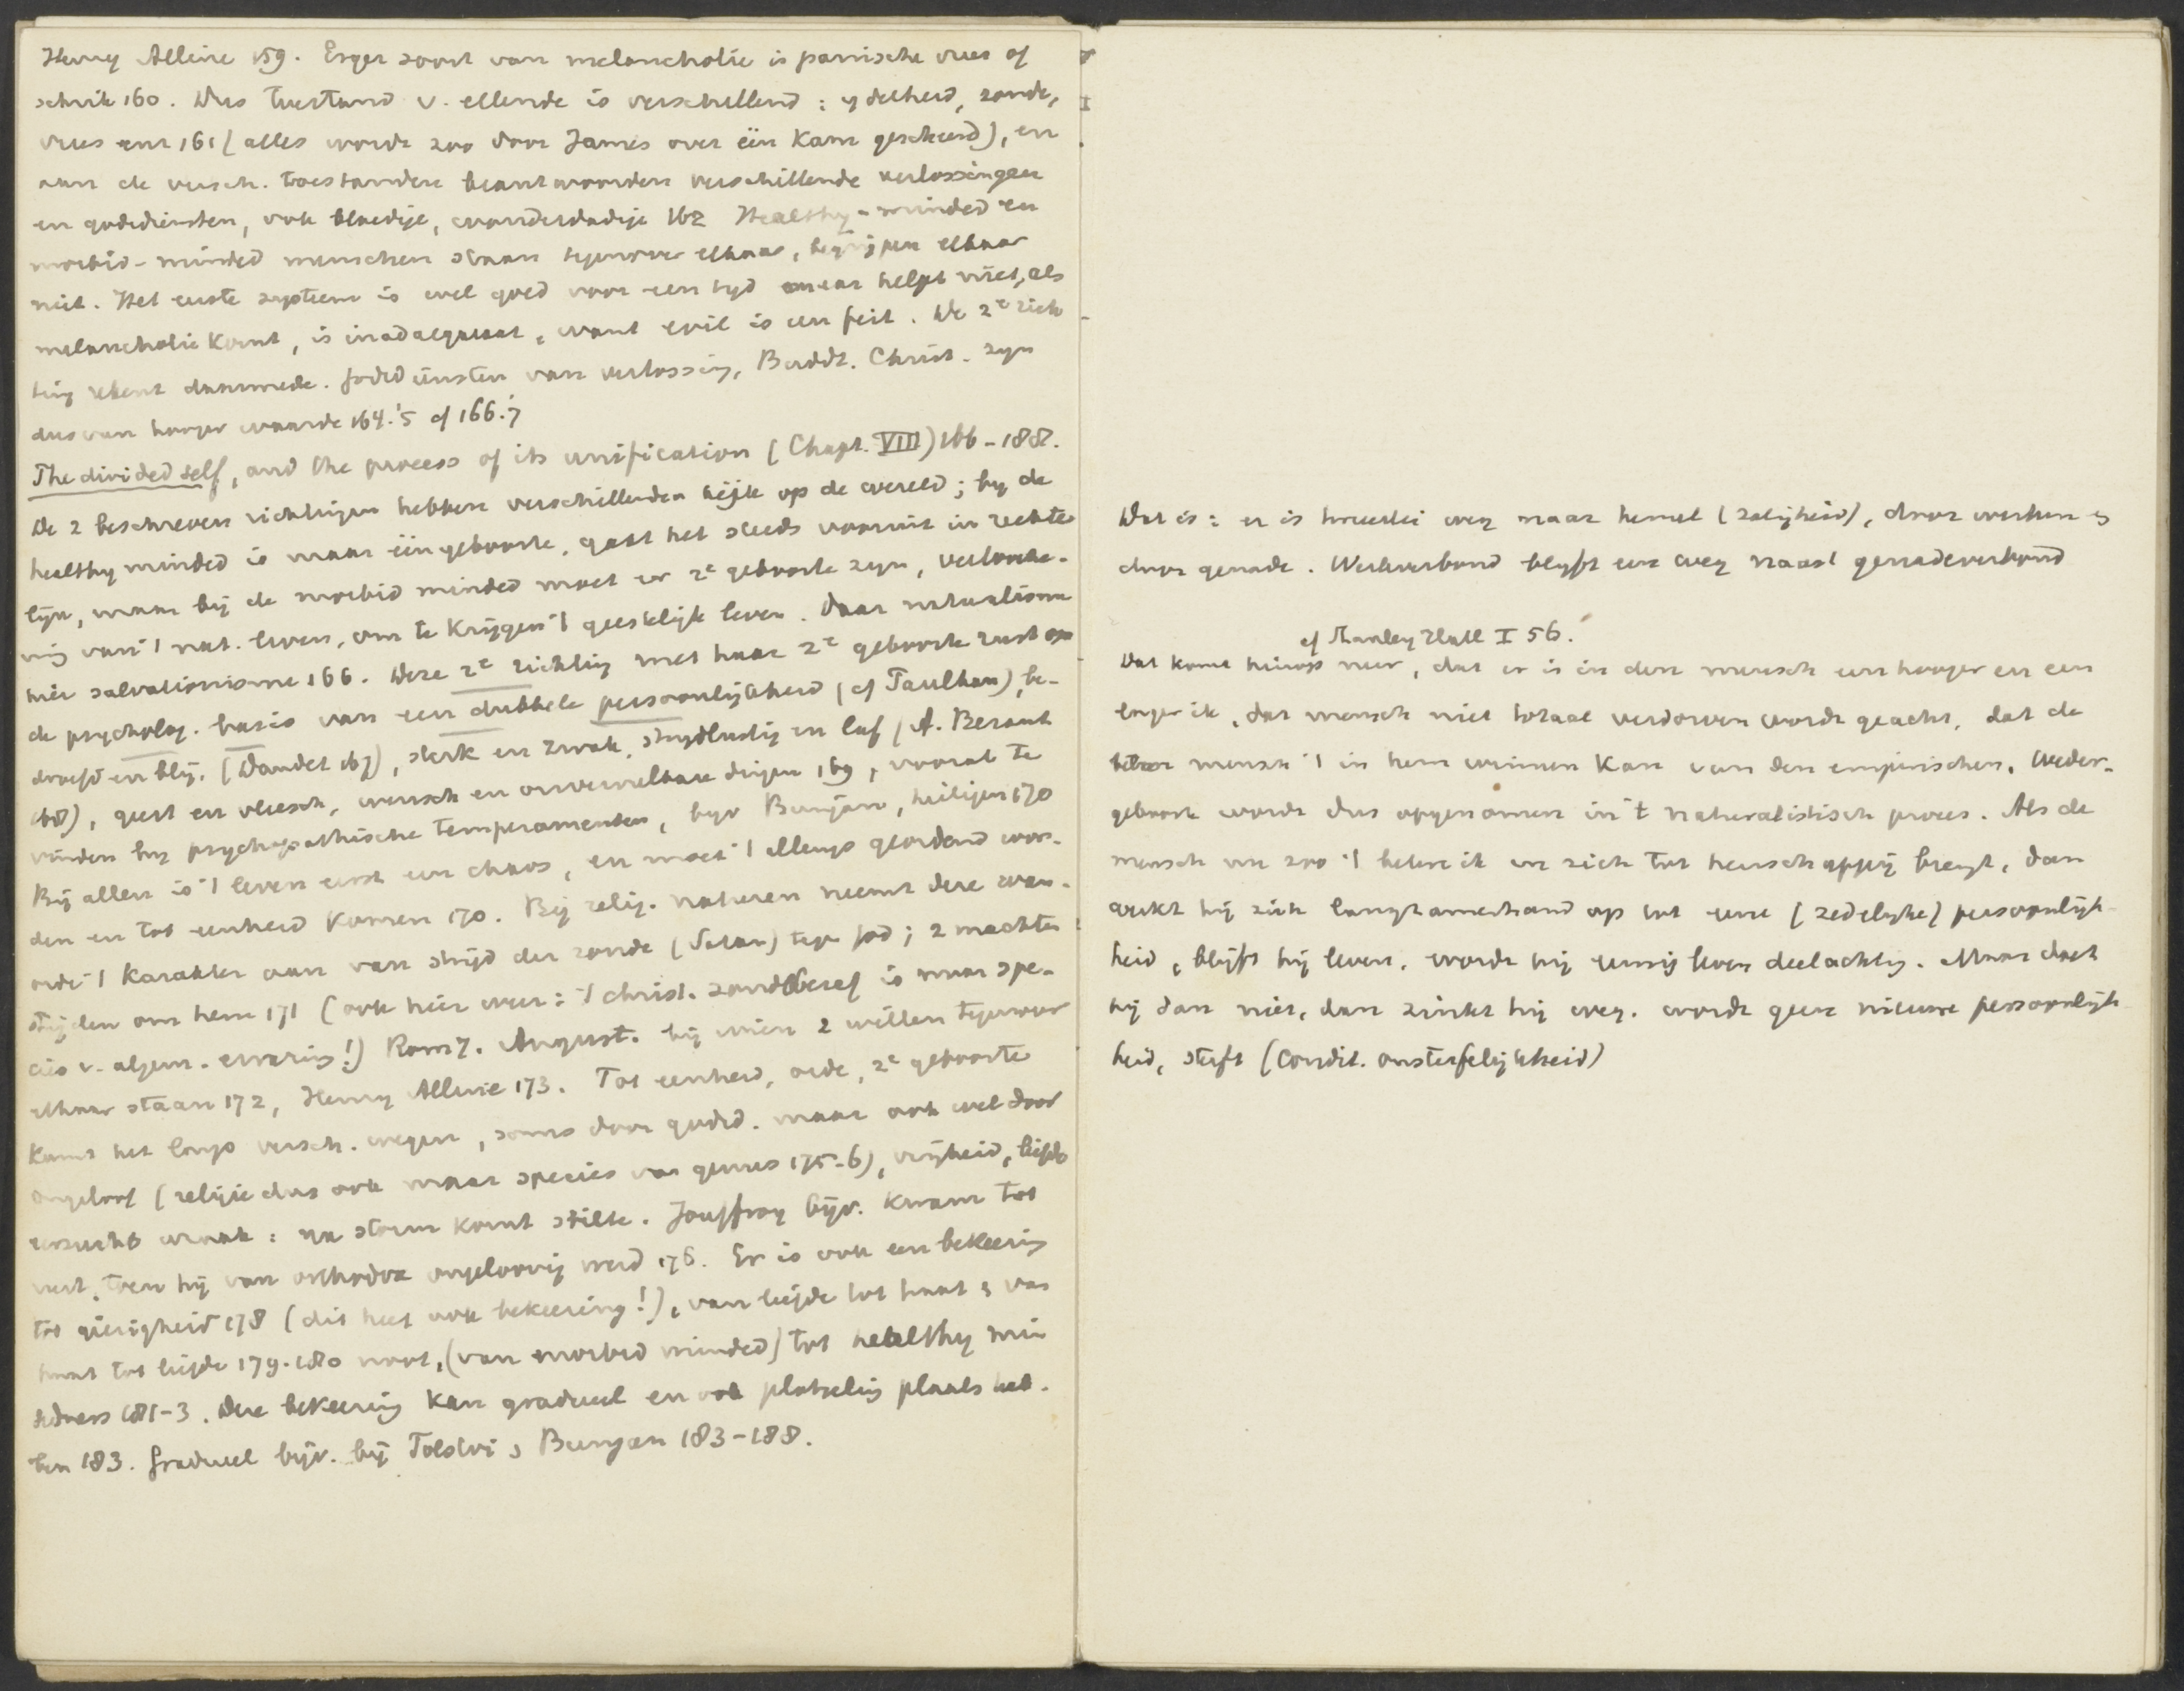 Henry Alleine 159. Erger soort van melancholie is panische vrees of
schrik 160. Dus toestand v. ellende is verschillend: ydelheid, zonde,
vrees enz 161 (alles wordt zoo door James over één kam gescheerd), en
aan de versch. toestanden beantwoorden verschillende verlossingen
en godsdiensten, ook bloedige, wonderdadige 162 Healthy-minded en
morbid-minded menschen staan tegenover elkaar, begrijpen elkaar
niet. Het eerste systeem is wel goed voor een tyd maar helpt niet, als
melancholie komt, is inadaequaat, want evil is een feit. De 2e rich
ting rekent daarmede. Godsdiensten van verlossing, Buddh. Christ. zyn
dus van hooger waarde 164.'5 cf 166.'7
The divided self, and the process of its unification (Chapt. VIII) 166-188.
De 2 beschreven richtingen hebben verschillenden kijk op de wereld; by de
healthy minded is maar ééne geboorte, gaat het steeds vooruit in rechte
lijn, maar bij de morbid minded moet er 2e geboorte zyn, verlooche-
ning van 't nat. leven, om te krijgen 't geestelijk leven. Daar naturalisme
hier salvationisme 166. Deze 2e richting met haar 2e geboorte rust op
de psycholog. basis van een dubbele persoonlijkheid (cf Paulhan), be-
droefd en blij. (Daudet 167), sterk en zwak, strydlustig en laf (A. Besant
168), geest en vleesch, wensch en onvereenbare dingen 169, vooral te
vinden by psychopathische temperamenten, byv Bunjan, heiligen 170
Bij allen is 't leven eerst een chaos, en moet 't allengs geordend wor-
den en tot eenheid komen 170. Bij relig. naturen neemt deze wan-
orde 't karakter aan van strijd der zonde (Satan) tegen God; 2 machten
strijden om hem 171 (ook hier weer: 't christ. zondbesef is maar spe-
cies v. algem. ervaring!) Rom 7. August. bij wien 2 willen tegenover
elkaar staan 172, Henry Alleine 173. Tot eenheid, orde, 2e geboorte
komt het langs versch. wegen, soms door godsd. maar ook wel door
ongeloof (religie dus ook maar species van genus 175-6), vrijheid, liefde
eerzucht wraak: na storm komt stilte. Jouffroy bijv. kwam tot
rust, toen hij van orthodox ongeloovig werd 176. Er is ook een bekeering
tot gierigheid 178 (dit heet ook bekeering!), van liefde tot haat, van
haat tot liefde 179. 180 noot, (van morbid minded) tot healthy min
dedness 181-3. Deze bekeering kan gradueel en ook plotseling plaats heb-
ben 183. Gradueel bijv. bij Tolstoi, Bunyan 183-188.
Dat is: er is tweeërlei weg naar hemel (zaligheid), door werken en
door genade. Werkverbond blyft een weg naast genadeverbond
cf Stanley Hall I 56.
Dat komt hierop neer, dat er is in den mensch een hooger en een
lager ik, dat mensch niet totaal verdorven wordt geacht, dat de
betere mensch 't in hem winnen kan van den empirischen. Weder-
geboorte wordt dus opgenomen in 't naturalistisch proces. Als de
mensch nu zoo 't betere ik in zich tot heerschappij brengt, dan
werkt hij zich langzamerhand op tot eene (zedelyke) persoonlijk-
heid, blijft hij leven, wordt hij eeuwig leven deelachtig. Maar doet
hij dan niet, dan zinkt hij weg, wordt geen nieuwe persoonlijk
heid, sterft (condit. onsterfelijkheid)